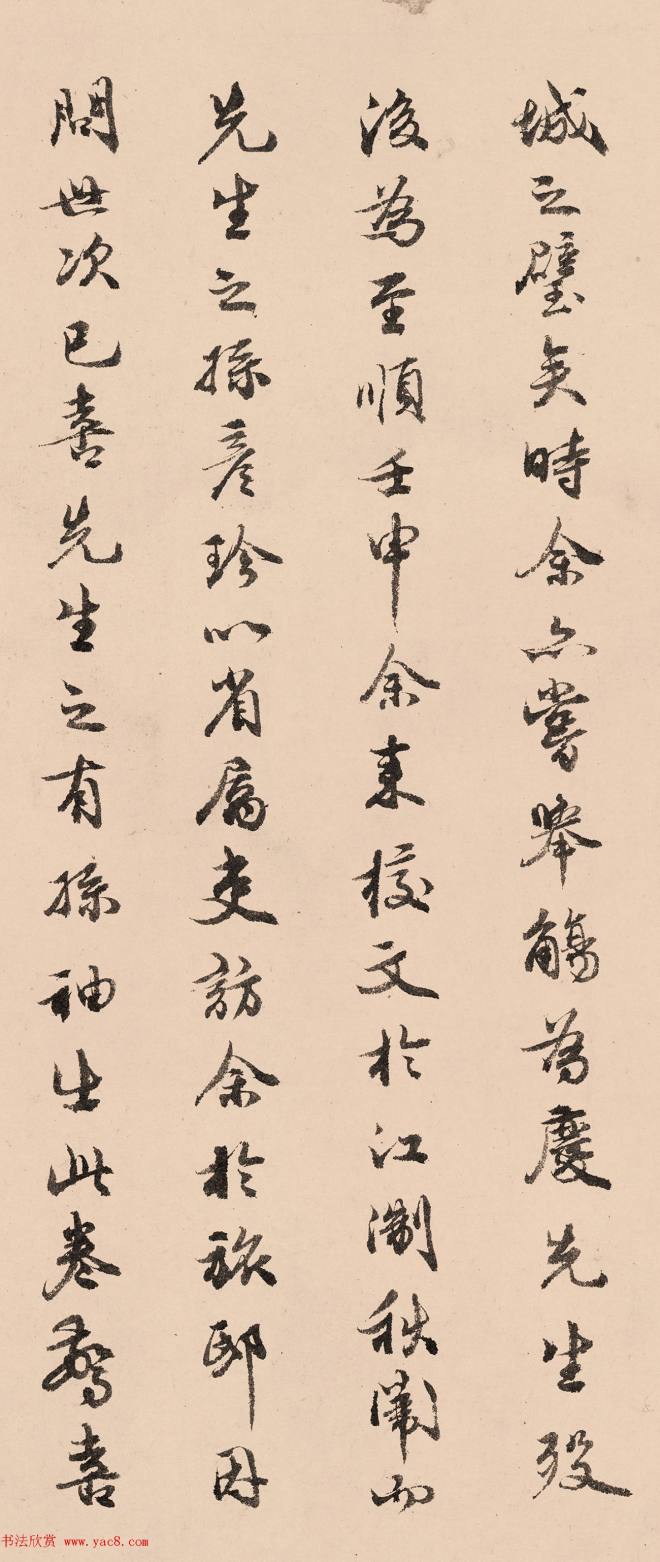 城之璧矣時余亦嘗舉觴為慶先生歿
後為至順壬申余来校文於江淛秋闈而
先生之孫彦珍以省屬吏訪余於旅邸因
問世次已喜先生之有孫袖出此卷驚喜
书法欣赏 www.yac8.com